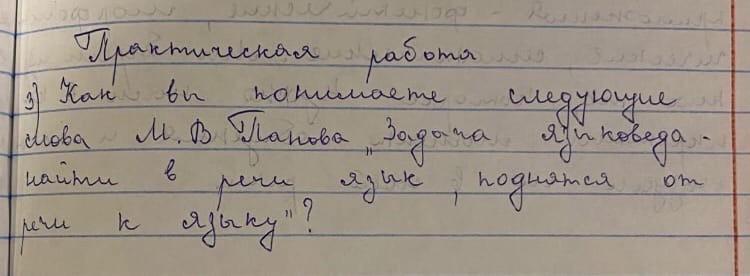 Практическая работа
3) Как вы понимаете следующие
слова М. В Панова „Задача языковеда -
найти в речи язык, поднятся от
речи к языку"?